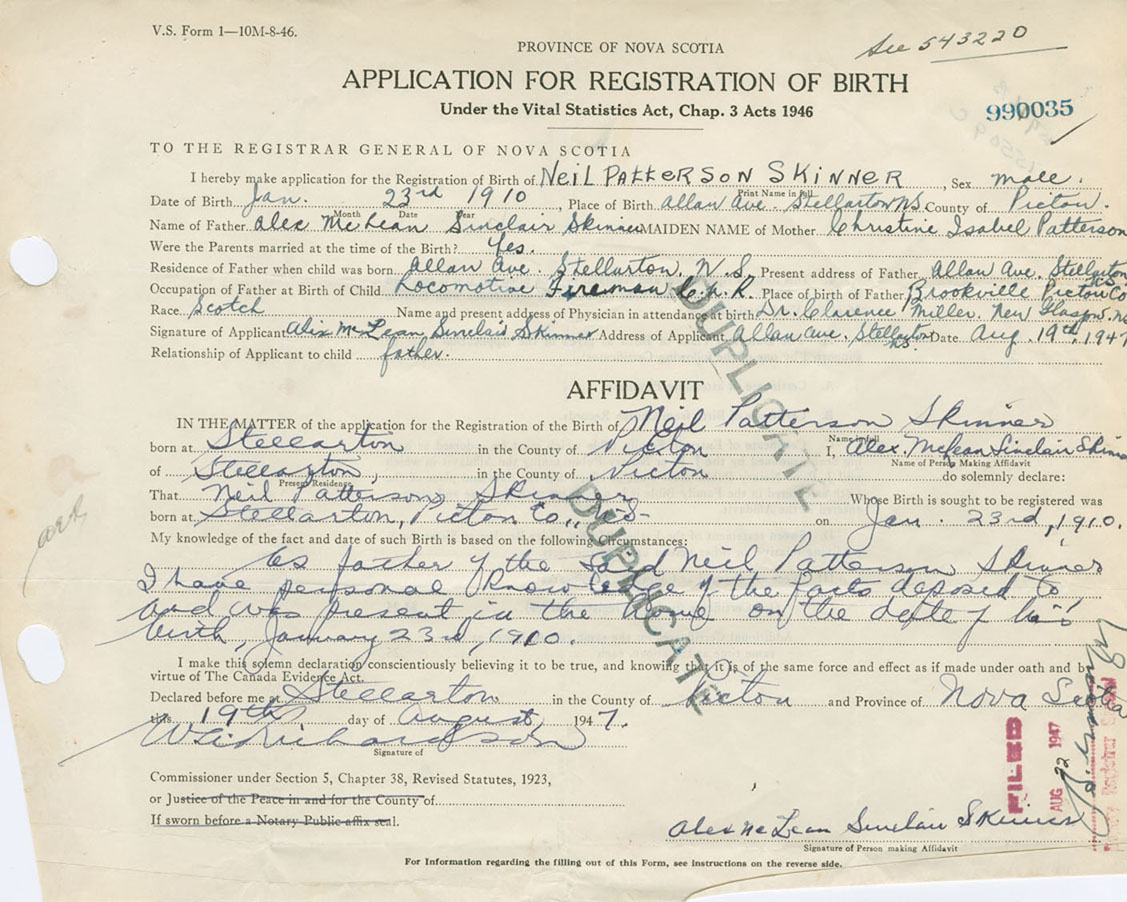 V.S. Form 1—10M-8-46.
PROVINCE OF NOVA SCOTIA
See 543220
APPLICATION FOR REGISTRATION OF BIRTH
Under the Vital Statistics Act, Chap. 3 Acts 1946
990035
TO THE REGISTRAR GENERAL OF NOVA SCOTIA
I hereby make application for the Registration of Birth of NEIL PATTERSON SKINNER, Sex male.
Print Name in full
Date of Birth Jan. 23rd 1910, Place of Birth Allan Ave. Stellarton NS. County of Pictou.
Month Date Year
Name of Father Alex McLean Sinclair Skinner MAIDEN NAME of Mother Christine Isabel Patterson
Were the Parents married at the time of the Birth? Yes.
Residence of Father when child was born Allan Ave. Stellarton, N.S. Present address of Father Allan Ave. Stellarton NS.
Occupation of Father at Birth of Child Locomotive Fireman C.N.R. Place of birth of Father Brookville Pictou Co
Race Scotch Name and present address of Physician in attendance at birth Dr. Clarence Miller. New Glasgow. NS
Signature of Applicant Alex McLean Sinclair Skinner Address of Applicant Allan Ave. Stellarton NS. Date Aug. 19th, 1947
Relationship of Applicant to child father.
DUPLICATE
AFFIDAVIT
IN THE MATTER of the application for the Registration of the Birth of Neil Patterson Skinner
Name in full
born at Stellarton in the County of Pictou I, Alex. McLean Sinclair Skinner
Name of Person Making Affidavit
of Stellarton, in the County of Pictou do solemnly declare:
Present Residence
That Neil Patterson Skinner Whose Birth is sought to be registered was
born at Stellarton, Pictou Co., N.S. on Jan. 23rd, 1910.
DUPLICATE
My knowledge of the fact and date of such Birth is based on the following Circumstances:
As father of the said Neil Patterson Skinner
I have personal knowledge of the facts deposed to
and was present in the home on the date of his
birth, January 23rd, 1910.
DUPLICATE
I make this solemn declaration conscientiously believing it to be true, and knowing that it is of the same force and effect as if made under oath and by
virtue of The Canada Evidence Act.
Declared before me at Stellarton in the County of Pictou and Province of Nova Scotia
this 19th day of August 1947.
Richardson
Signature of
FILED
AUG 22 1947
Commissioner under Section 5, Chapter 38, Revised Statutes, 1923,
or Justice of the Peace in and for the County of
If sworn before a Notary Public affix seal.
Alex McLean Sinclair Skinner
Signature of Person making Affidavit
For Information regarding the filling out of this Form, see instructions on the reverse side.